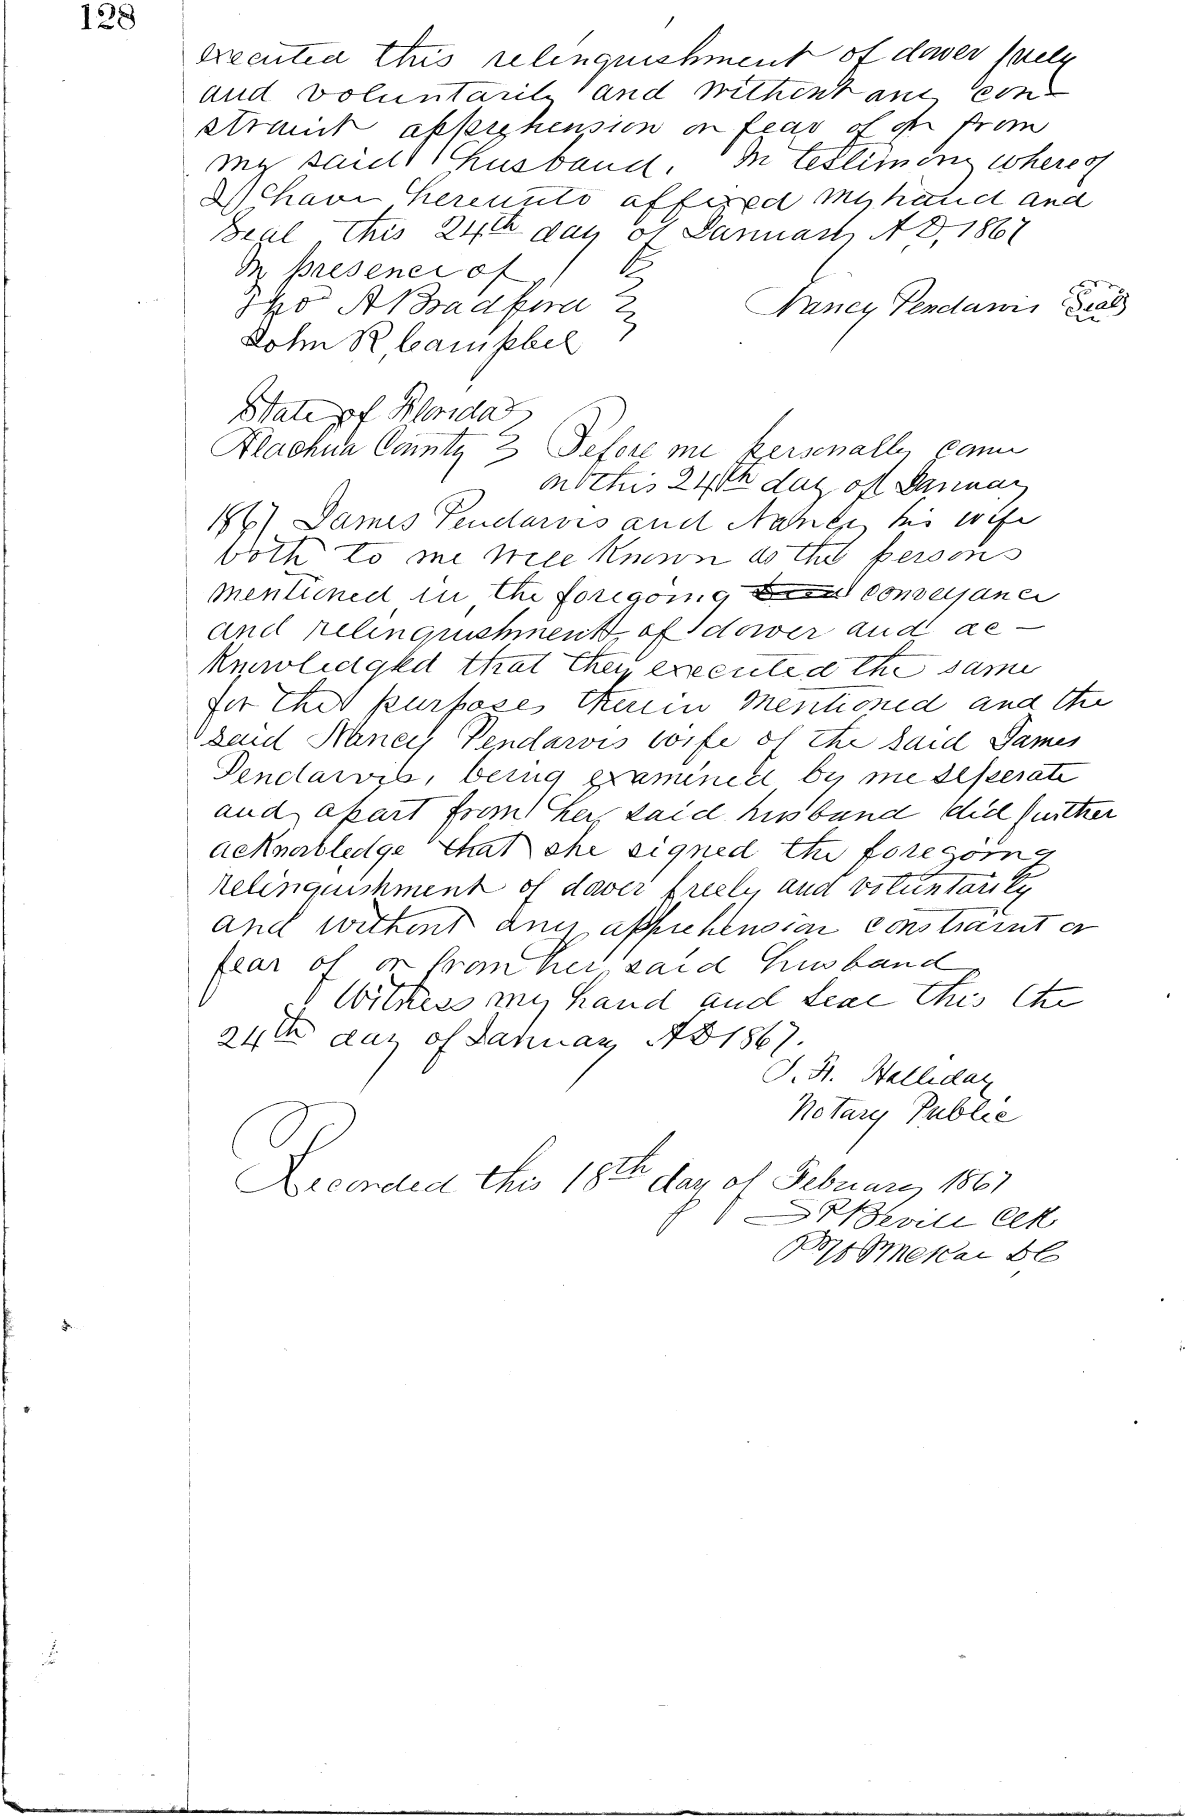 128
executed this relinquishment of dower freely
and voluntarily and without any con-
straint apprehension or fear of or from
my said husband. In testimony whereof
I have hereunto affixed my hand and
Seal this 24th day of January A.D. 1867
In presence of
Tho A Bradford
Nancy Pendarvis Seal
John R, Campbel
State of Florida
Alachua County Before me personally came
on this 24th day of January
1867 James Pendarvis and Nancy his wife
both to me well known as the persons
mentioned in the foregoing Deed conveyance
and relinquishment of dower and ac-
knowledged that they executed the same
for the purposes therein mentioned and the
said Nancy Pendarvis wife of the said James
Pendarvis, being examined by me seperate
and apart from her said husband did further
acknowledge that she signed the foregoing
relinquishment of dower freely and voluntarily
and without any apprehension constraint or
fear of or from her said husband
Witness my hand and Seal this the
24th day of January AD 1867.
S. F. Halliday
Notary Public
Recorded this 18th day of February 1867
Bevill Clk
DC